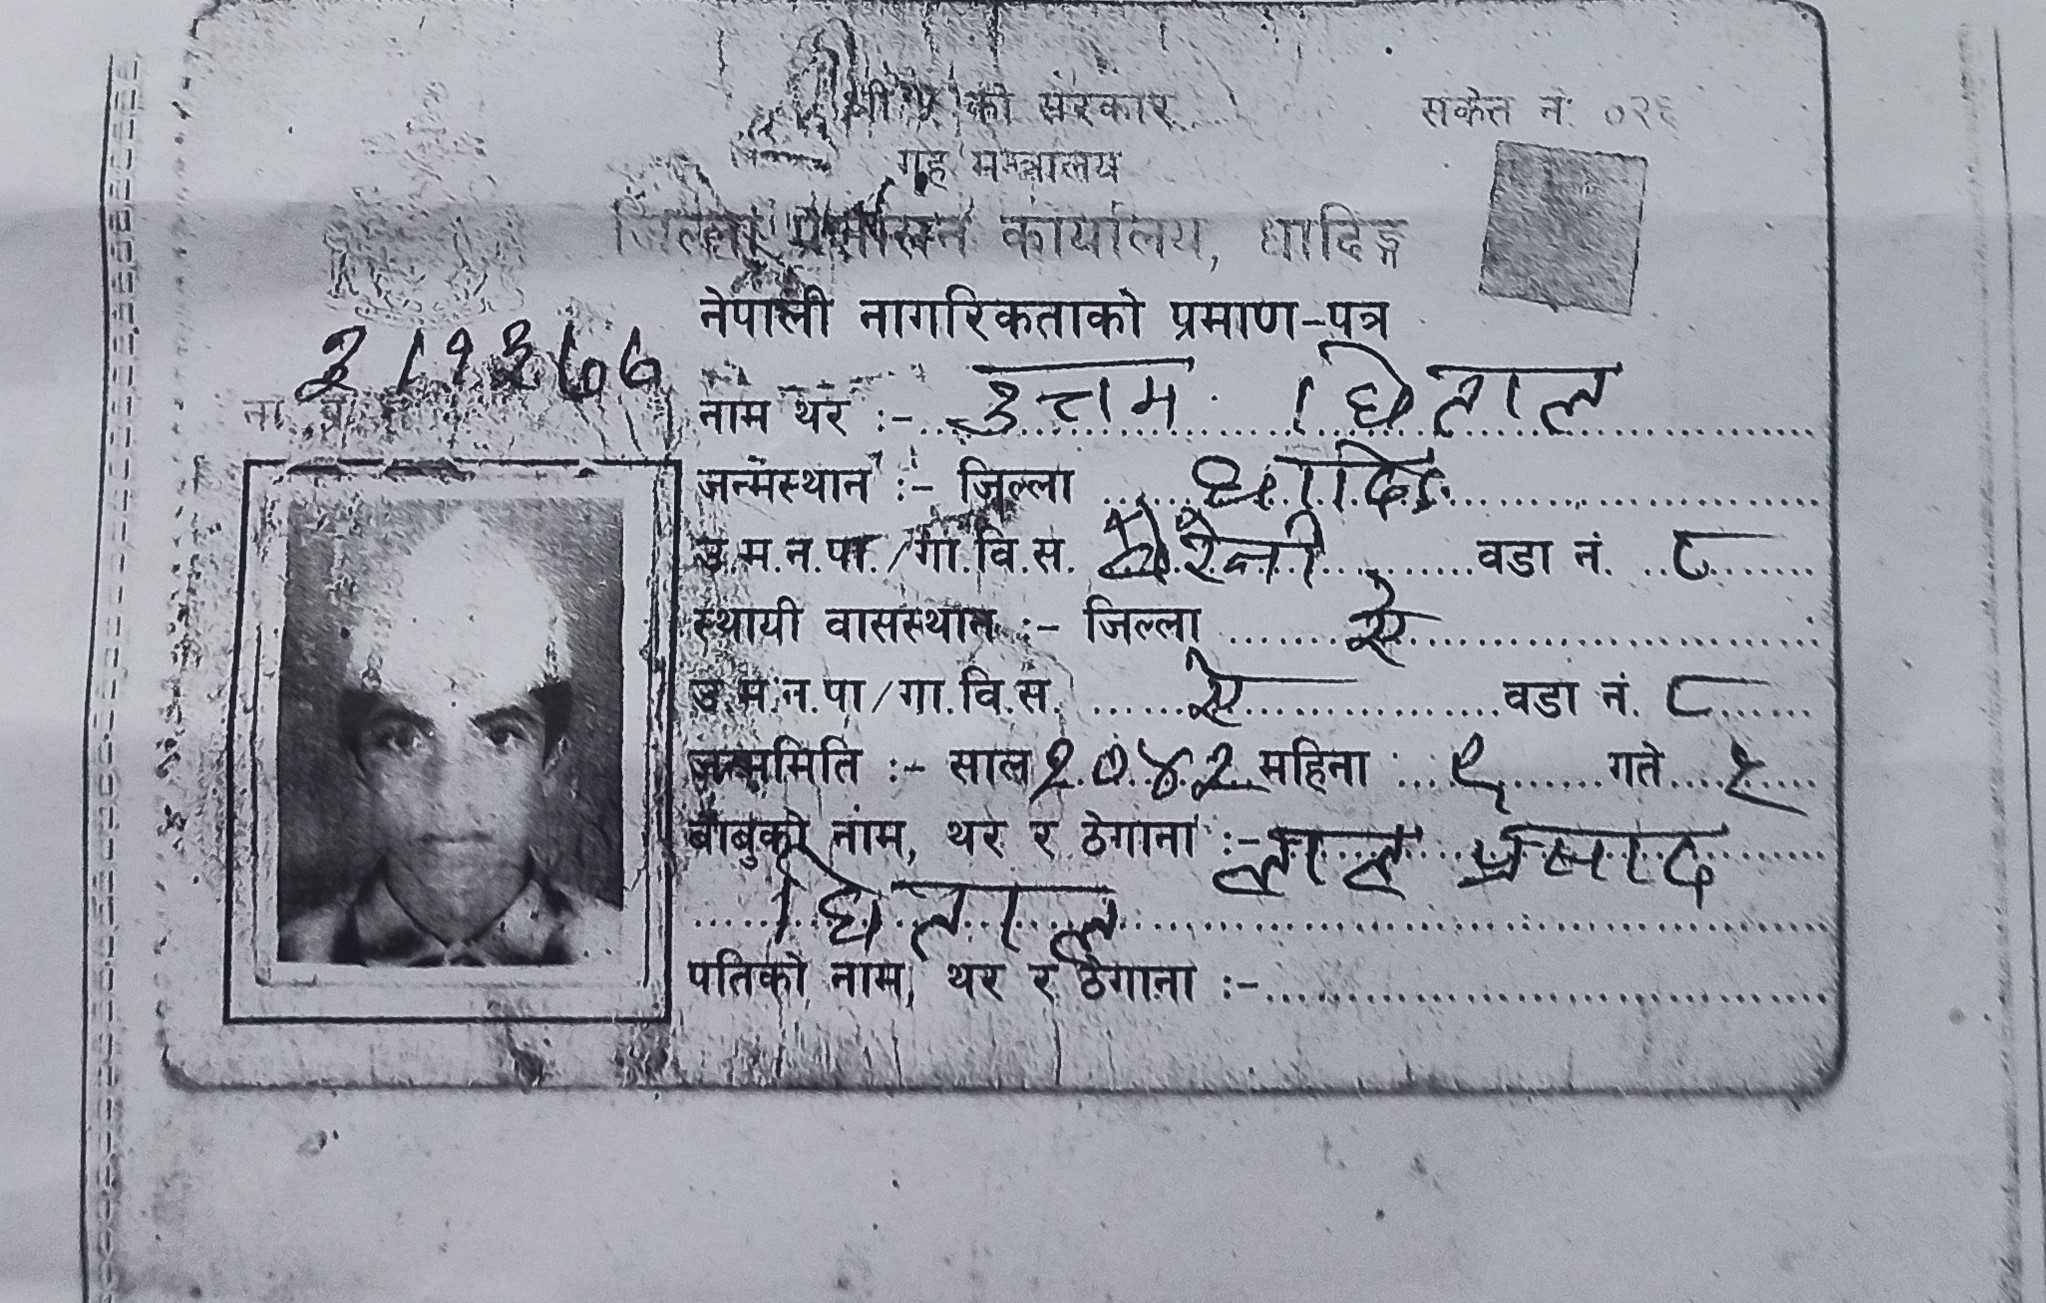 श्री ५ को सरकार
सकेत नं: ०२६
गृह मन्त्रालय
जिल्ला प्रशासन कार्यालय, धादिङ्ग
नेपाली नागरिकताको प्रमाण-पत्र
ना.
नाम थर :- उत्तम घिताल
जन्मस्थान :- जिल्ला धादिङ
उ.म.न.पा./गा.वि.स. वडा नं. ८
स्थायी वासस्थान :- जिल्ला ऐ
उ.म.न.पा/गा.वि.स. ऐ वडा नं. ८
जन्ममिति :- साल २०४२ महिना ९ गते
बाबुको नाम, थर र ठेगाना :- लाल प्रसाद
घिताल
पतिको नाम, थर र ठेगाना :-